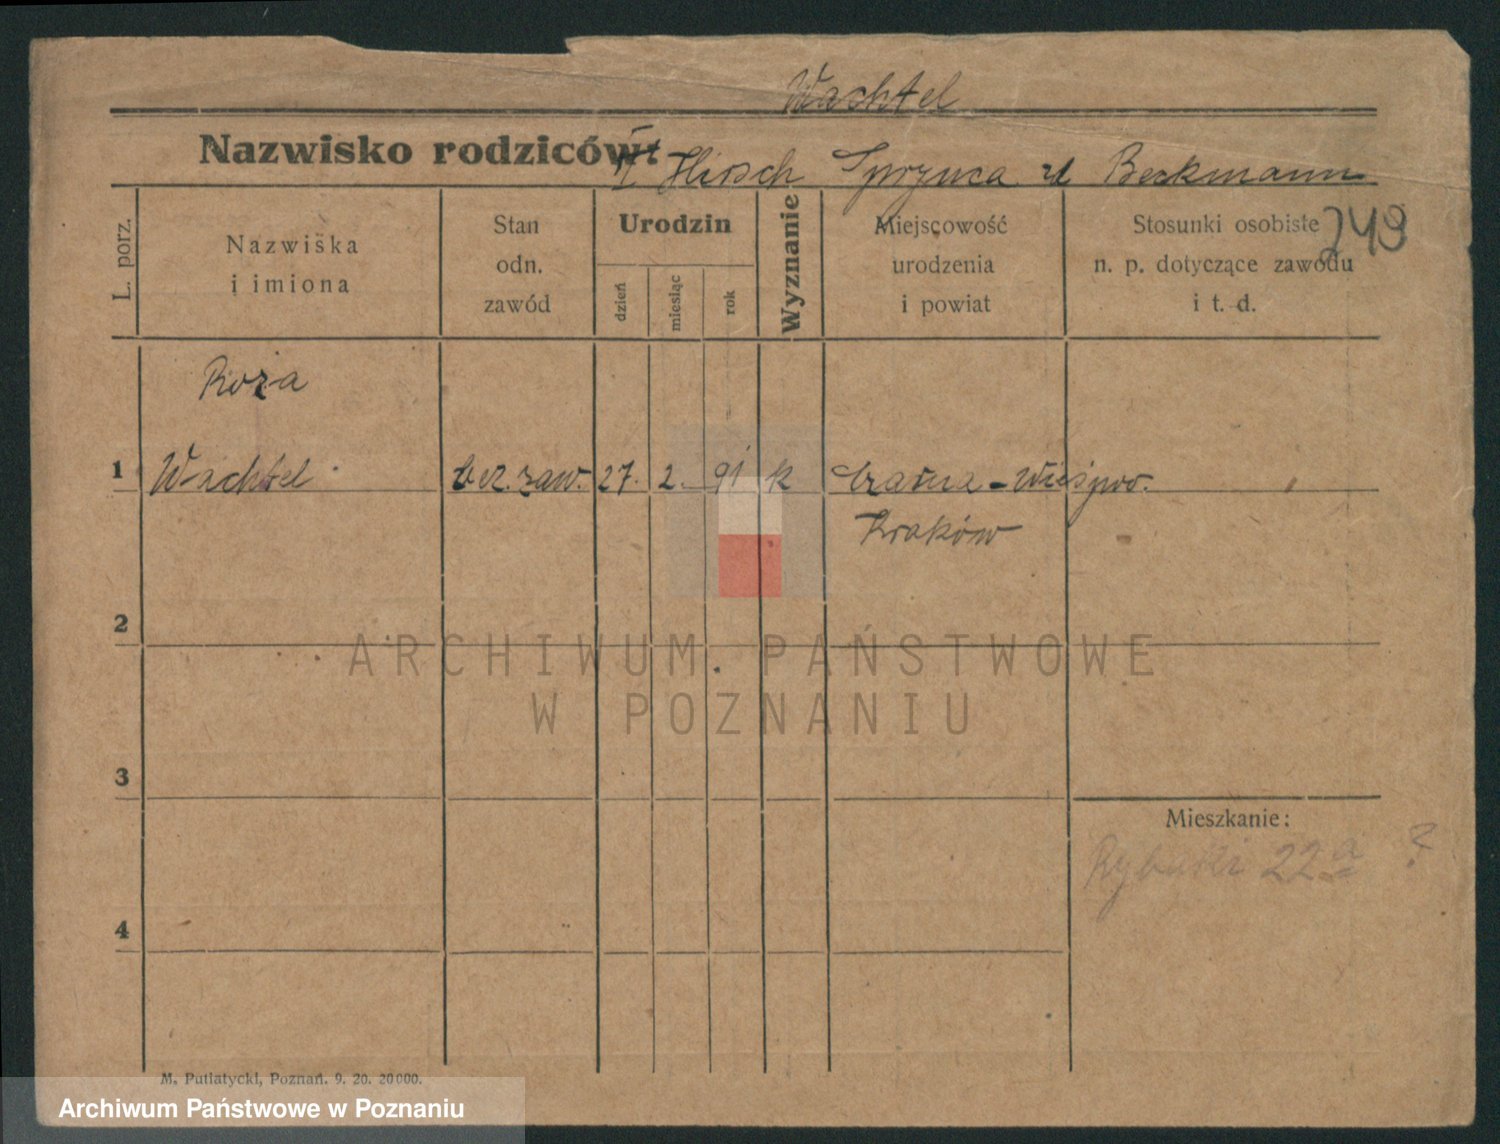 Wachtel
Nazwisko rodziców:
I Hirsch Sprynca zd Beckmann
L. porz.
Nazwiska
i imiona
Stan
odn.
zawód
Urodzin
dzień
miesiąc
rok
Wyznanie
Miejscowość
urodzenia
i powiat
Stosunki osobiste
n. p. dotyczące zawodu
i t. d.
249
Roza
1 Wachtel bez. zaw. 27. 2. 91 k Czarna-Wieś pow.
Kraków
2
3
4
Mieszkanie:
Rybaki 22a ?
ARCHIWUM PAŃSTWOWE
W POZNANIU
M. Putiatycki, Poznań. 9. 20. 20000.
Archiwum Państwowe w Poznaniu